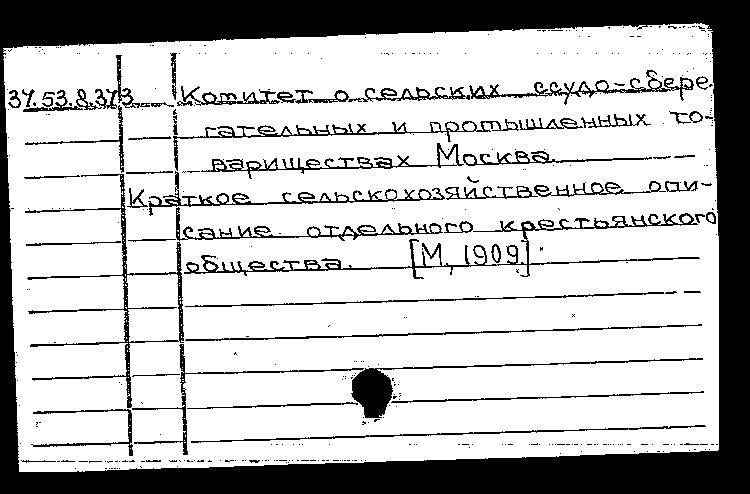 37.53.8.373 Комитет о сельских ссудо-сбере
гательных и промышленных то-
вариществах Москва.
Краткое сельскохозяйственное опи-
сание отдельного крестьянского
общества. [М., 1909].